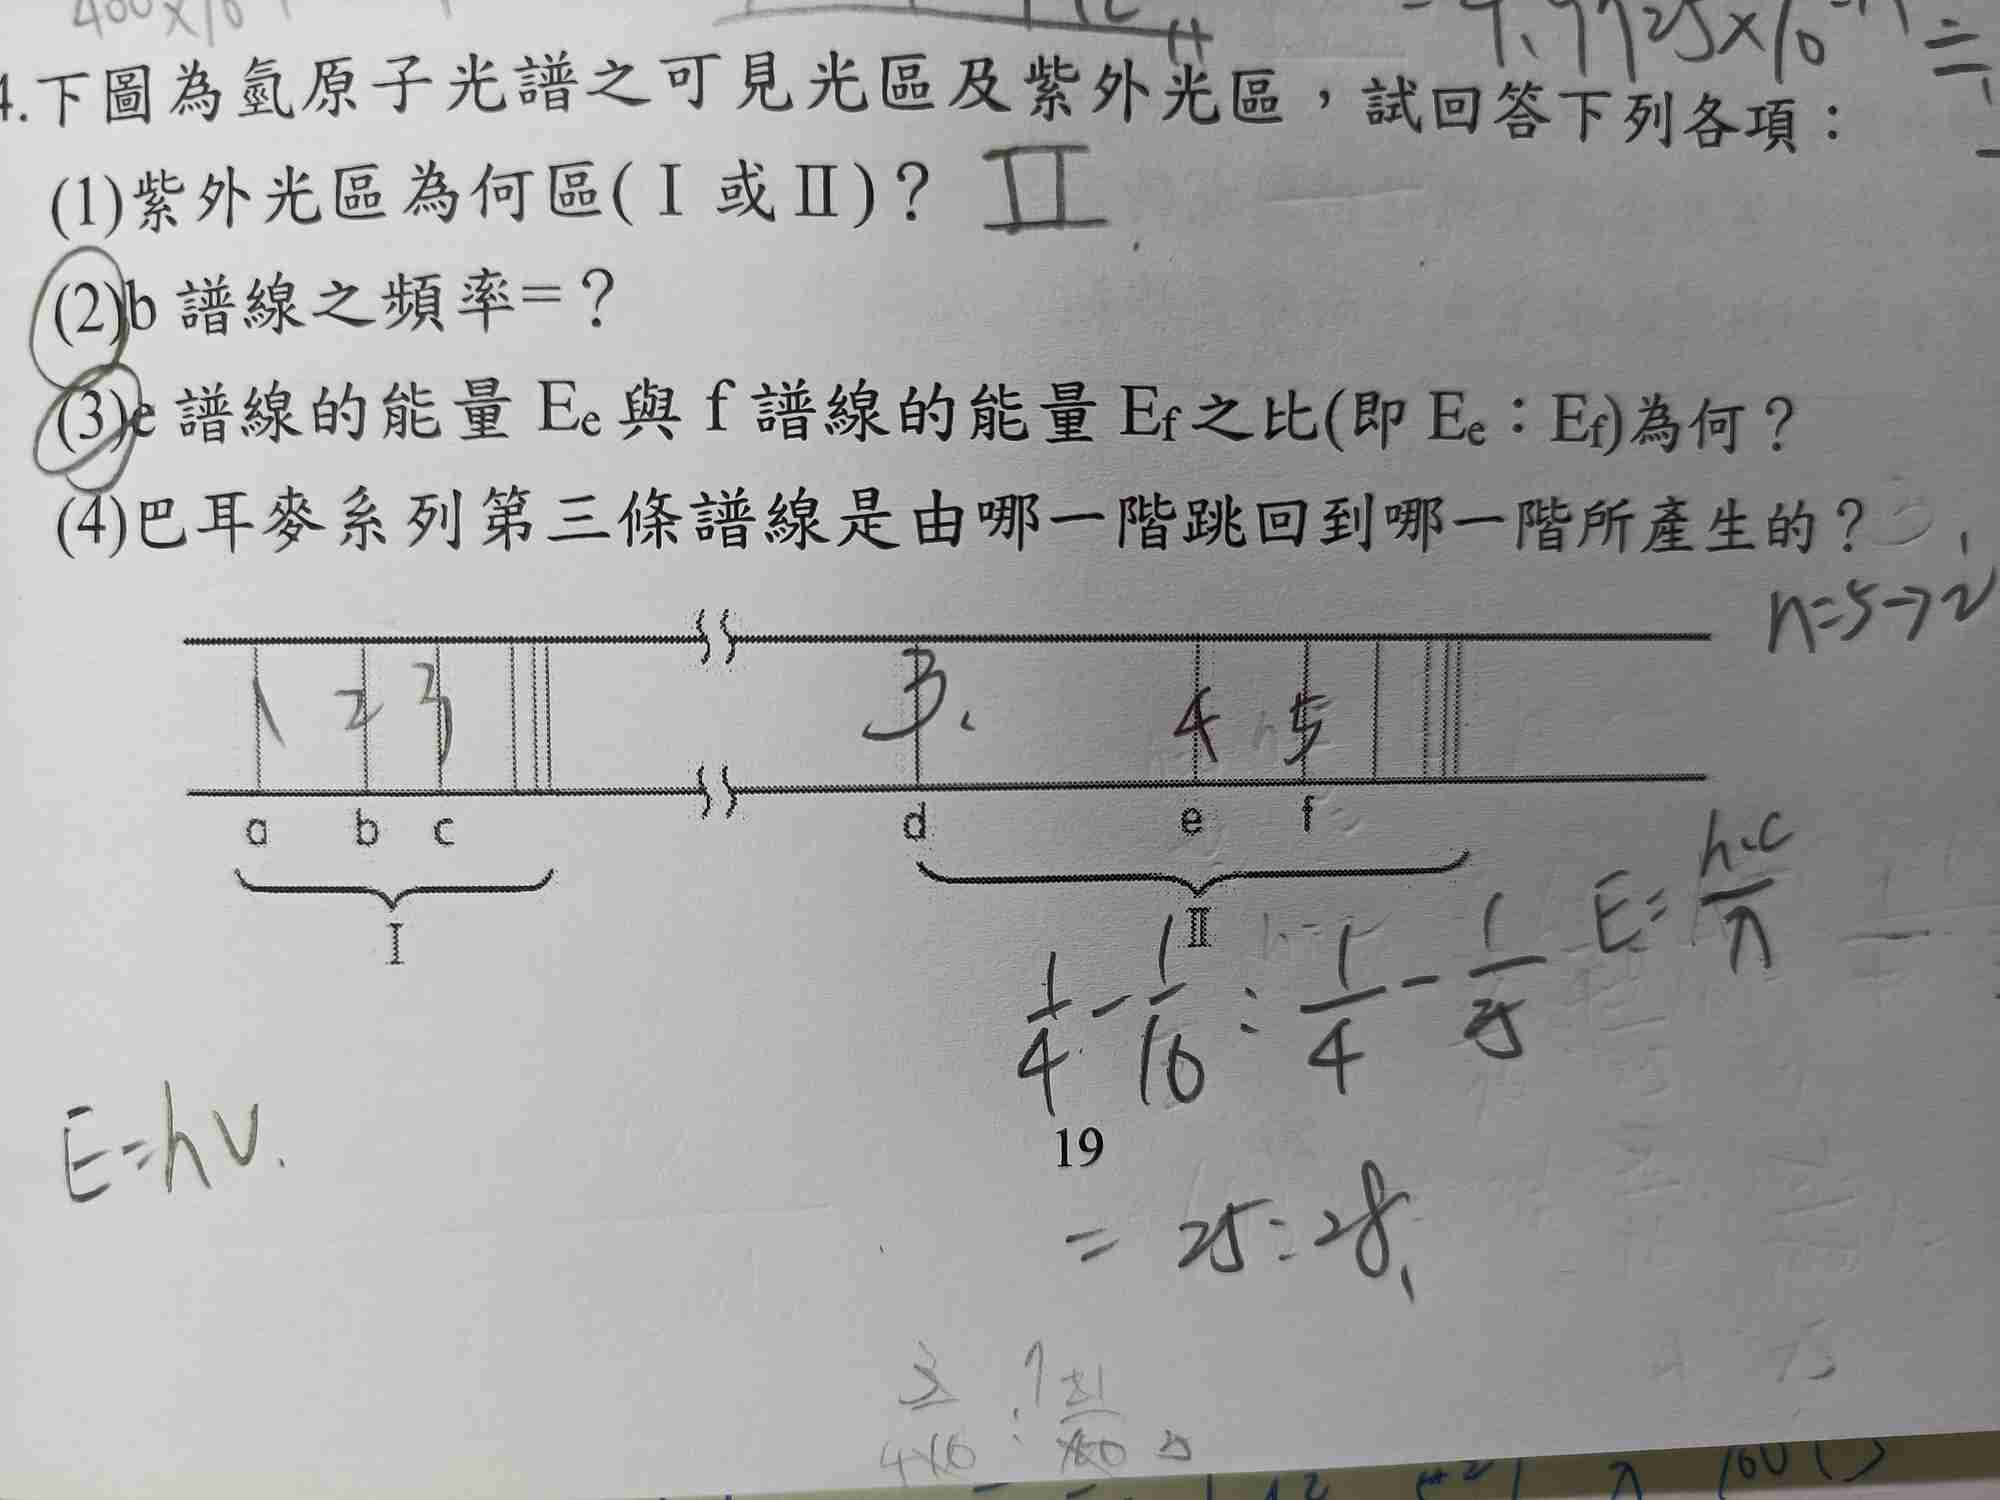 4.下圖為氫原子光譜之可見光區及紫外光區，試回答下列各項：
(1)紫外光區為何區(Ⅰ或Ⅱ)？ II
(2)b 譜線之頻率=？
(3)e 譜線的能量 Ee 與 f 譜線的能量 Ef 之比(即 Ee：Ef)為何？
(4)巴耳麥系列第三條譜線是由哪一階跳回到哪一階所產生的？
n=5→2
1 2 3 3. 4 5
a b c d e f
Ⅰ Ⅱ
E= h.c/λ
1/4 - 1/16 : 1/4 - 1/25
E=hν.
19
= 25:28